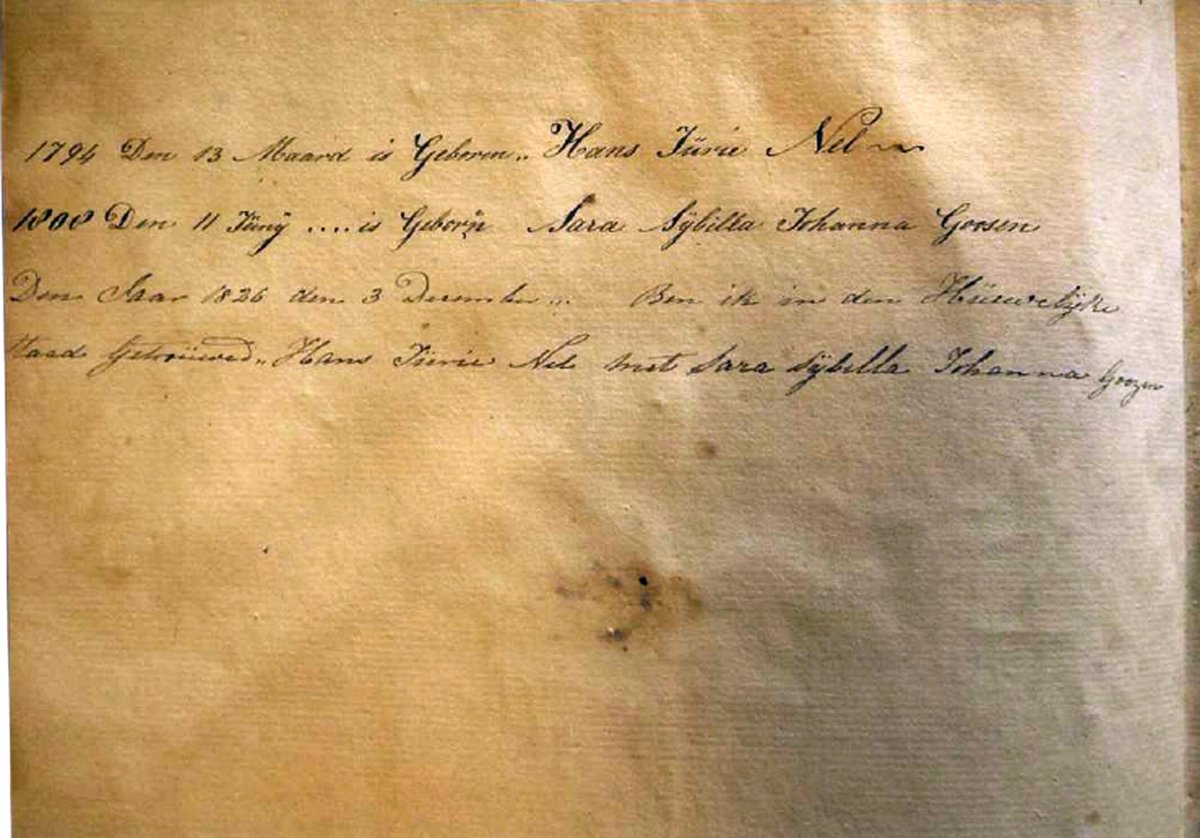 1794 Den 13 Maard is Geboren„ Hans Jürie Nel
1808 Den 11 Jünÿ .... is Geborn Sara Sÿbilla Johanna Goosen
Den Jaar 1826 den 3 December ... Ben ik in den Hüuwelÿke
Staad Getroüwed„ Hans Jürie Nel met Sara Sÿbilla Johanna Goozen